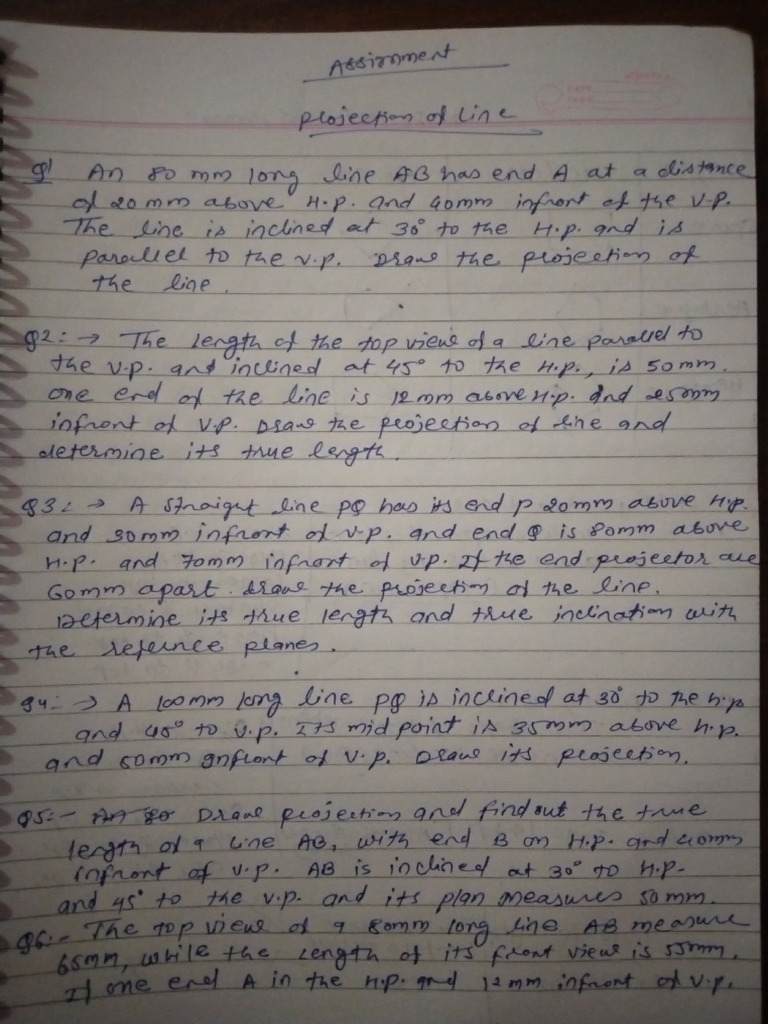 Assignment
Projection of Line
Q1 An 80 mm long line AB has end A at a distance
of 20mm above H.p. and 40mm infront of the V.P.
The line is inclined at 30° to the H.p. and is
parallel to the v.p. Draw the projection of
the line.
Q2:→ The length of the top view of a line parallel to
the V.p. and inclined at 45° to the H.p., is 50mm.
one end of the line is 12mm above H.p. and 25mm
infront of V.P. Draw the projection of line and
determine its true length.
Q3:→ A straight line PQ has its end p 20mm above H.p.
and 30mm infront of v.p. and end Q is 80mm above
H.p. and 70mm infront of v.p. If the end projector are
60mm apart. draw the projection of the line.
Determine its true length and true inclination with
the refernce planes.
Q4:→ A 100mm long line PQ is inclined at 30° to the h.p
and 45° to v.p. Its mid point is 35mm above h.p.
and 50mm infront of v.p. Draw its projection.
Q5:- Draw projection and find out the true
length of a line AB, with end B on H.p. and 40mm
infront of v.p. AB is inclined at 30° to H.p.
and 45° to the v.p. and its plan measures 50mm.
Q6:- The top view of a 80mm long line AB measure
65mm, while the length of its front view is 55mm.
If one end A in the H.p. and 12mm infront of v.p.